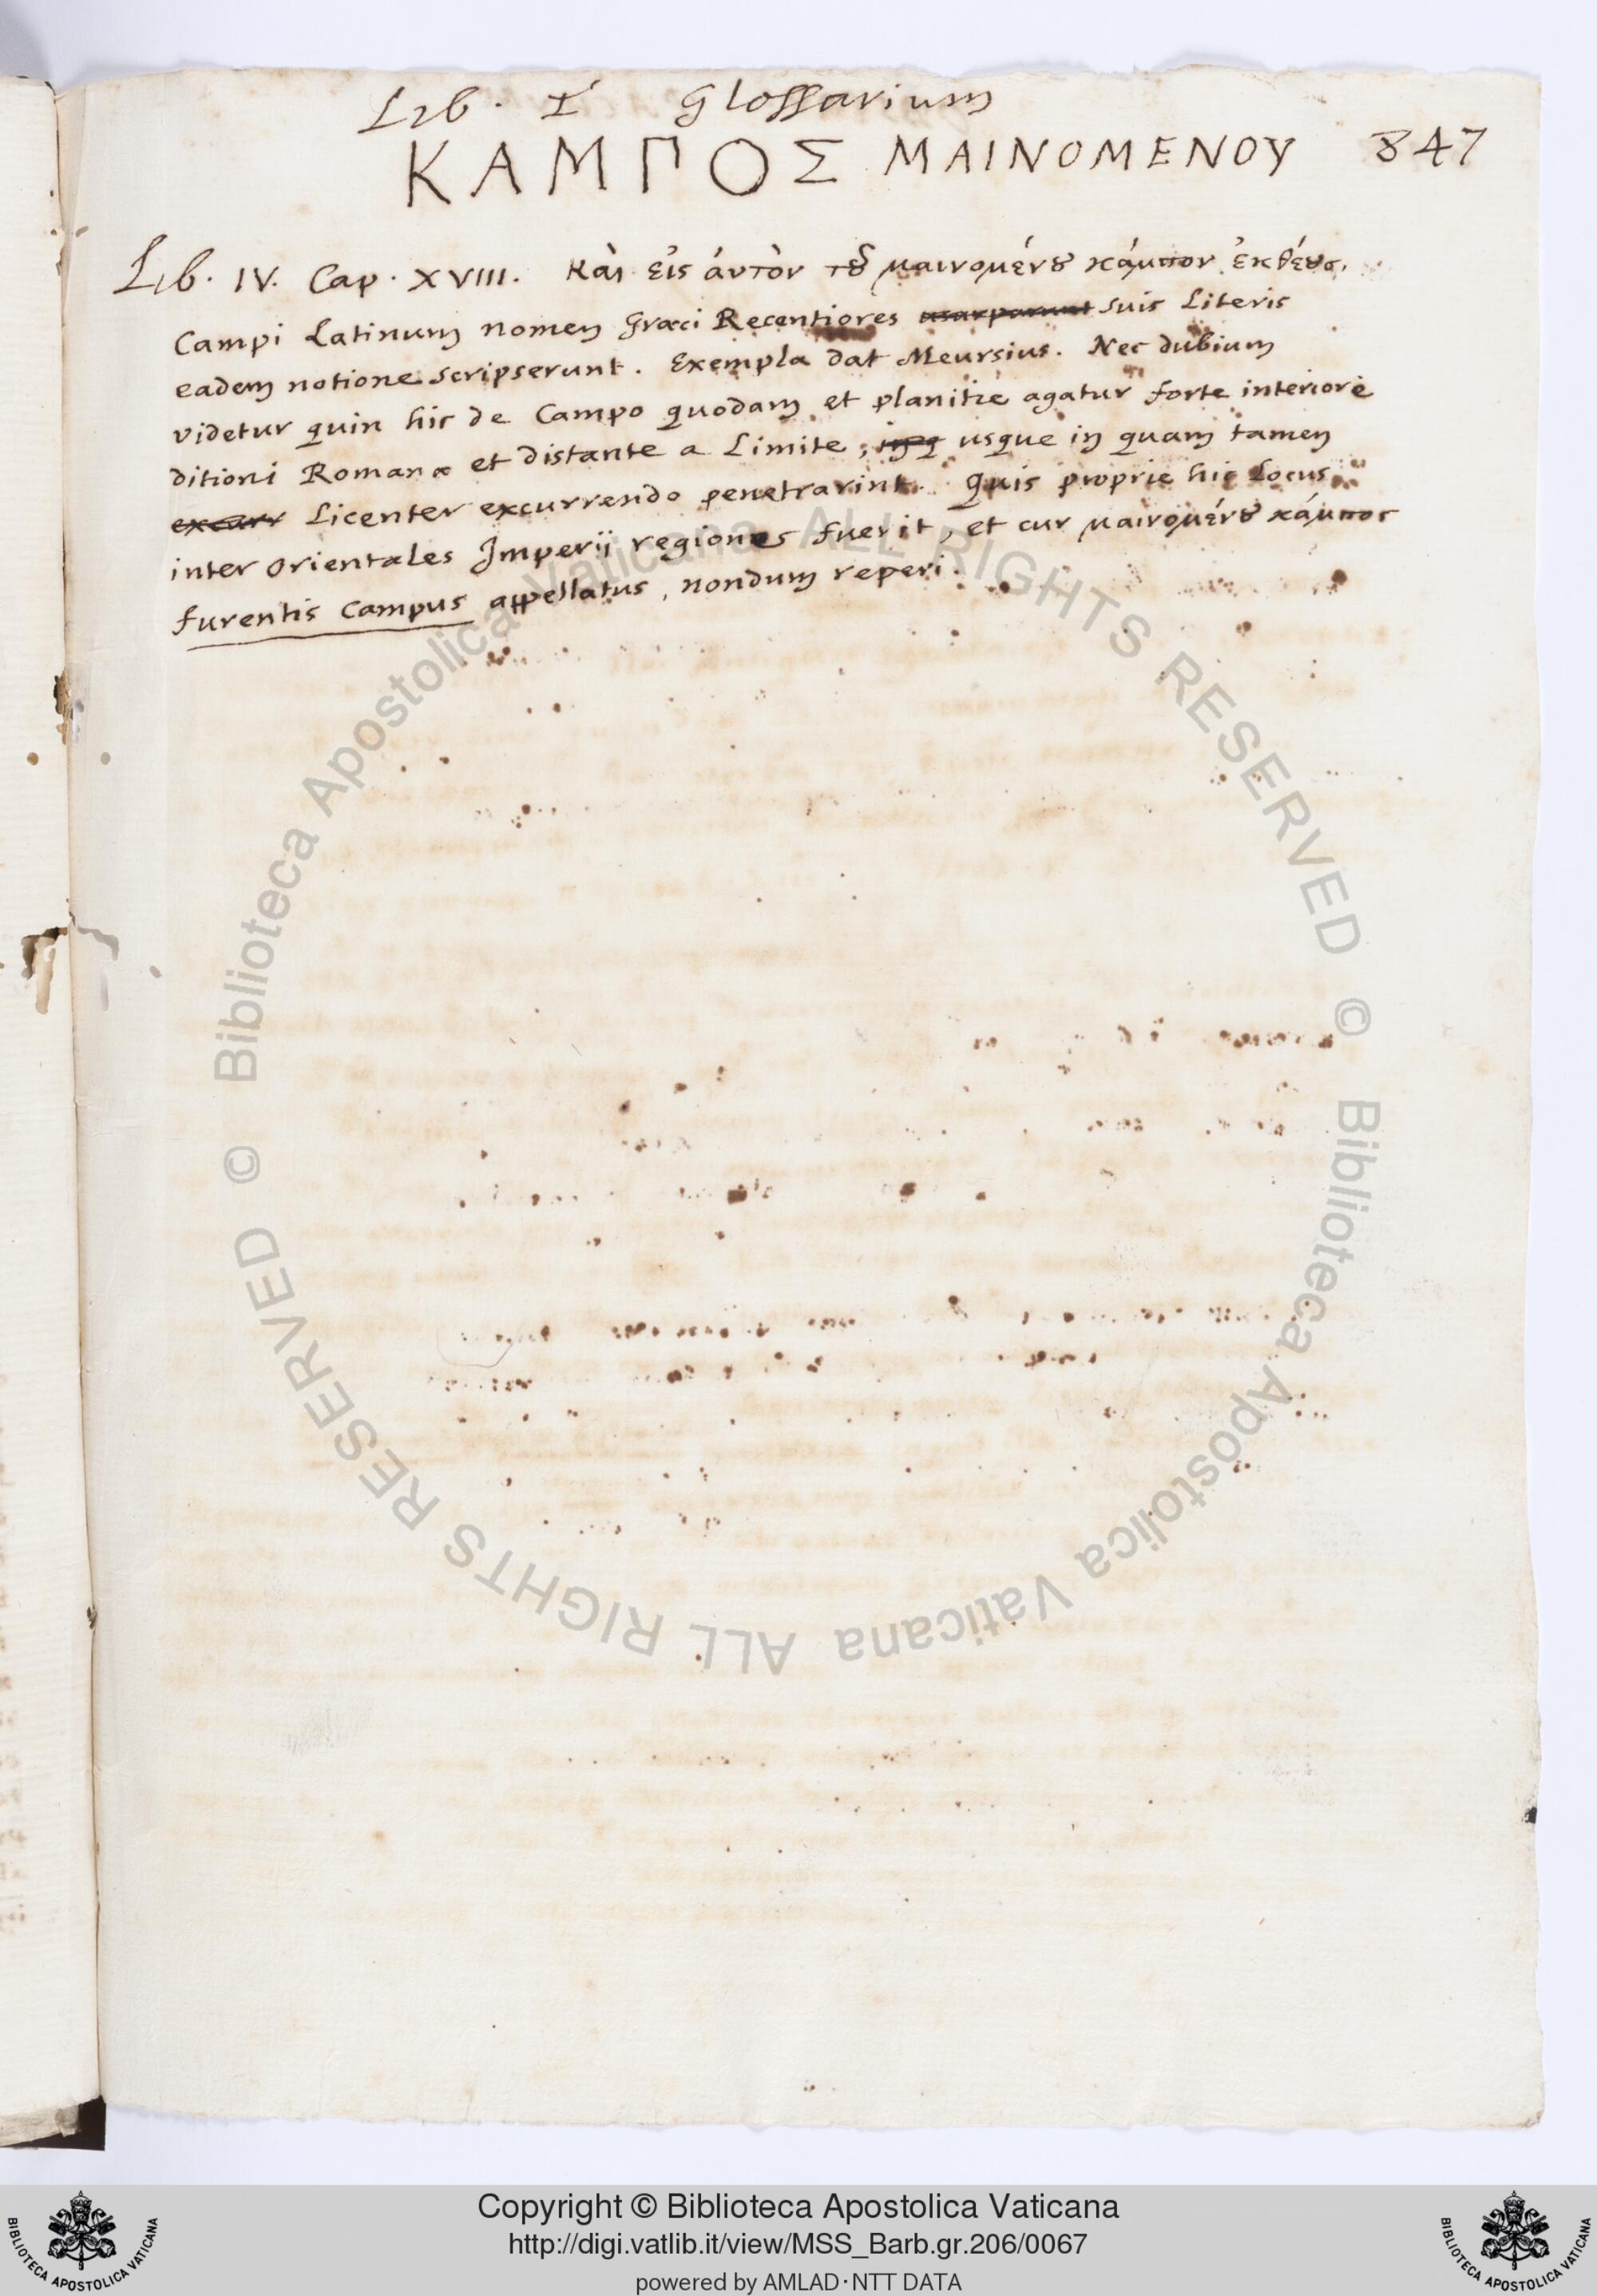 Lib. I Glossarium
ΚΑΜΠΟΣ ΜΑΙΝΟΜΕΝΟΥ 847
Lib. IV. Cap. XVIII. Καὶ εἰς ἀυτὸν τȣ͂ μαινομένȣ κάμπον
Campi Latinum nomen Græci Recentiores usurparunt suis Literis
eadem notione scripserunt. Exempla dat Meursius. Nec dubium
videtur quin hic de Campo quodam et planitie agatur forte interiore
ditioni Romanæ et distante a Limite, usque in quam tamen
excurr Licenter excurrendo penetrarint. Quis proprie hic Locus
inter Orientales Imperii regiones fuerit, et cur μαινομένȣ κάμπος
furentis Campus appellatus, nondum reperi.
© Biblioteca Apostolica Vaticana ALL RIGHTS RESERVED
© Biblioteca Apostolica Vaticana ALL RIGHTS RESERVED
Copyright © Biblioteca Apostolica Vaticana
http://digi.vatlib.it/view/MSS_Barb.gr.206/0067
powered by AMLAD·NTT DATA
BIBLIOTECA APOSTOLICA VATICANA
BIBLIOTECA APOSTOLICA VATICANA